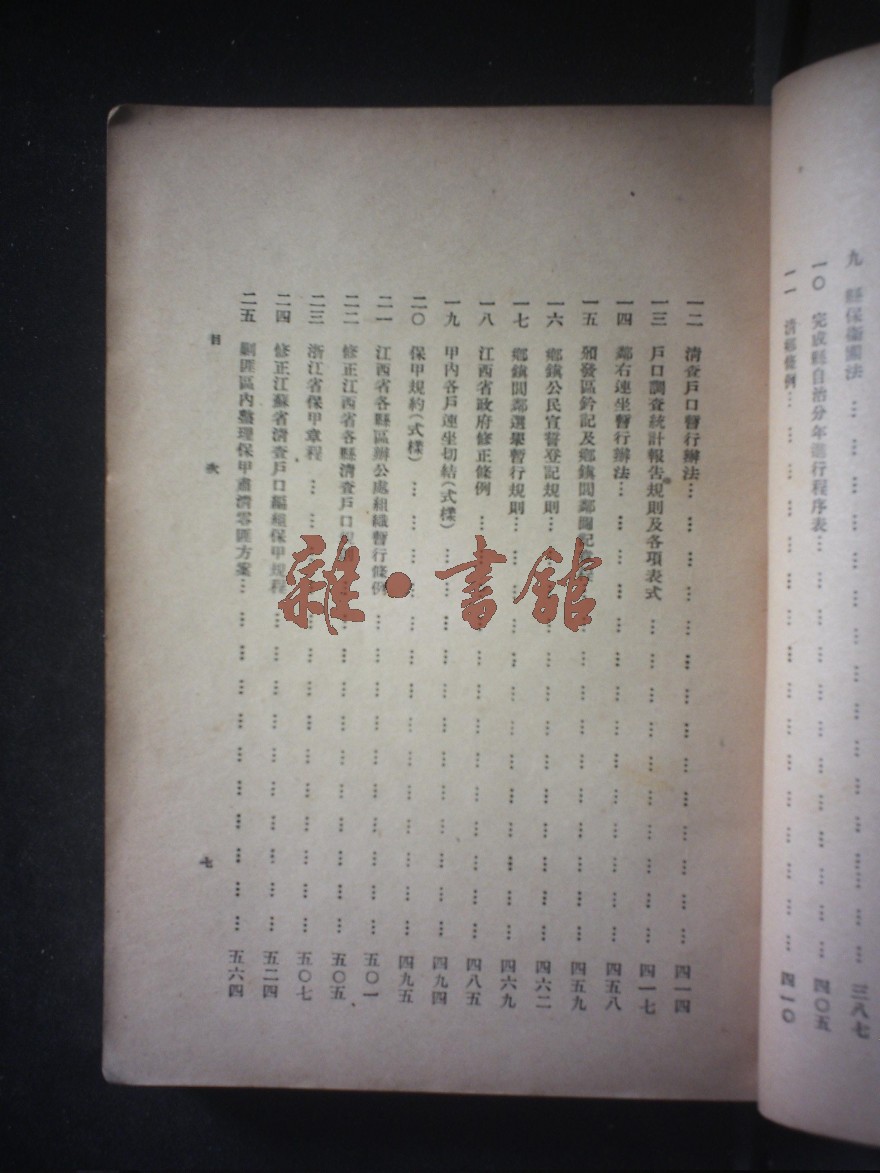 九 縣保衛團法 … 三八七
一〇 完成縣自治分年進行程序表 … 四〇五
一一 清鄉條例 … 四一〇
一二 清查戶口暫行辦法 … 四一四
一三 戶口調查統計報告規則及各項表式 … 四一七
一四 鄰右連坐暫行辦法 … 四五八
一五 頒發區鈐記及鄉鎮閭鄰圖記 … 四五九
一六 鄉鎮公民宣誓登記規則 … 四六二
一七 鄉鎮閭鄰選舉暫行規則 … 四六九
一八 江西省政府修正條例 … 四八五
一九 甲內各戶連坐切結(式樣) … 四九四
二〇 保甲規約(式樣) … 四九五
二一 江西省各縣區辦公處組織暫行條例 … 五〇一
二二 修正江西省各縣清查戶口 … 五〇五
二三 浙江省保甲章程 … 五〇七
二四 修正江蘇省清查戶口編組保甲規程 … 五二四
二五 剿匪區內整理保甲肅清零匪方案 … 五六四
目 次
七
雜·書館